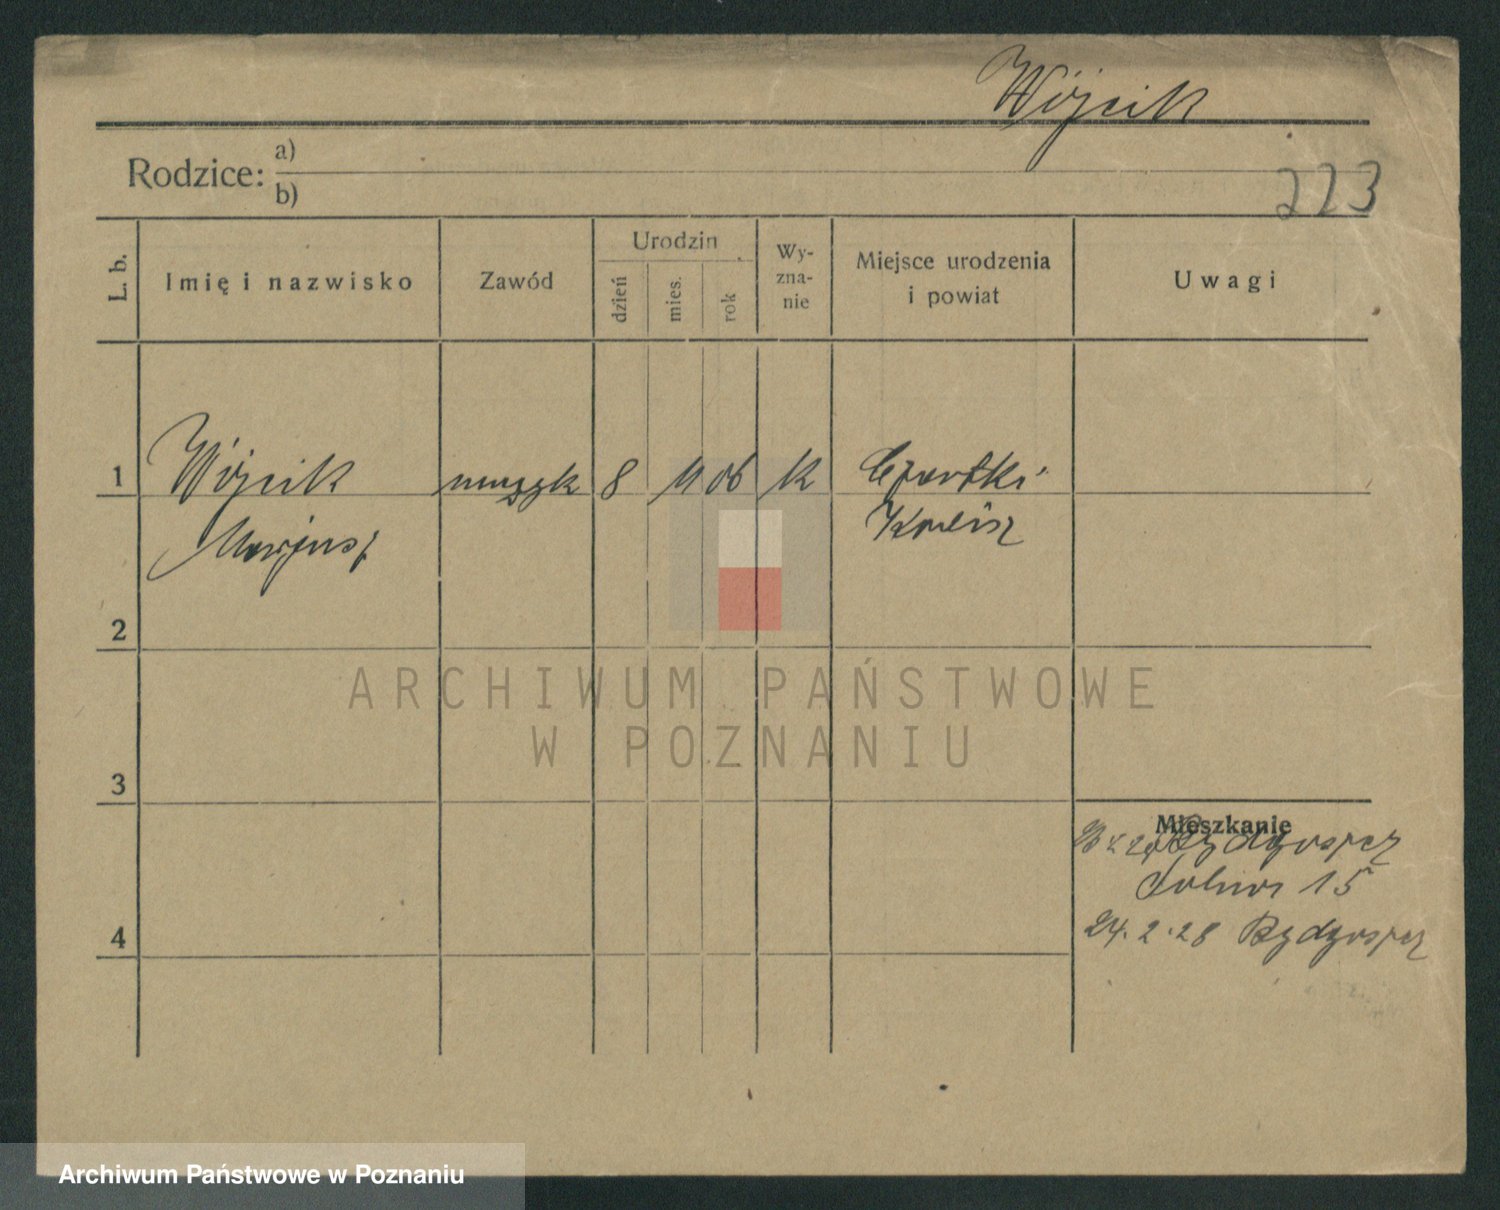 Wójcik
Rodzice: a)
b)
223
L. b.
Imię i nazwisko
Zawód
Urodzin
dzień
mies.
rok
Wy-
zna-
nie
Miejsce urodzenia
i powiat
Uwagi
1
Wójcik muzyk 8 11 06 k Czartki
Marjusz Kalisz
2
ARCHIWUM PAŃSTWOWE
W POZNANIU
3
Mieszkanie
Bydgoszcz
15
4
24. 2. 28 Bydgoszcz
Archiwum Państwowe w Poznaniu